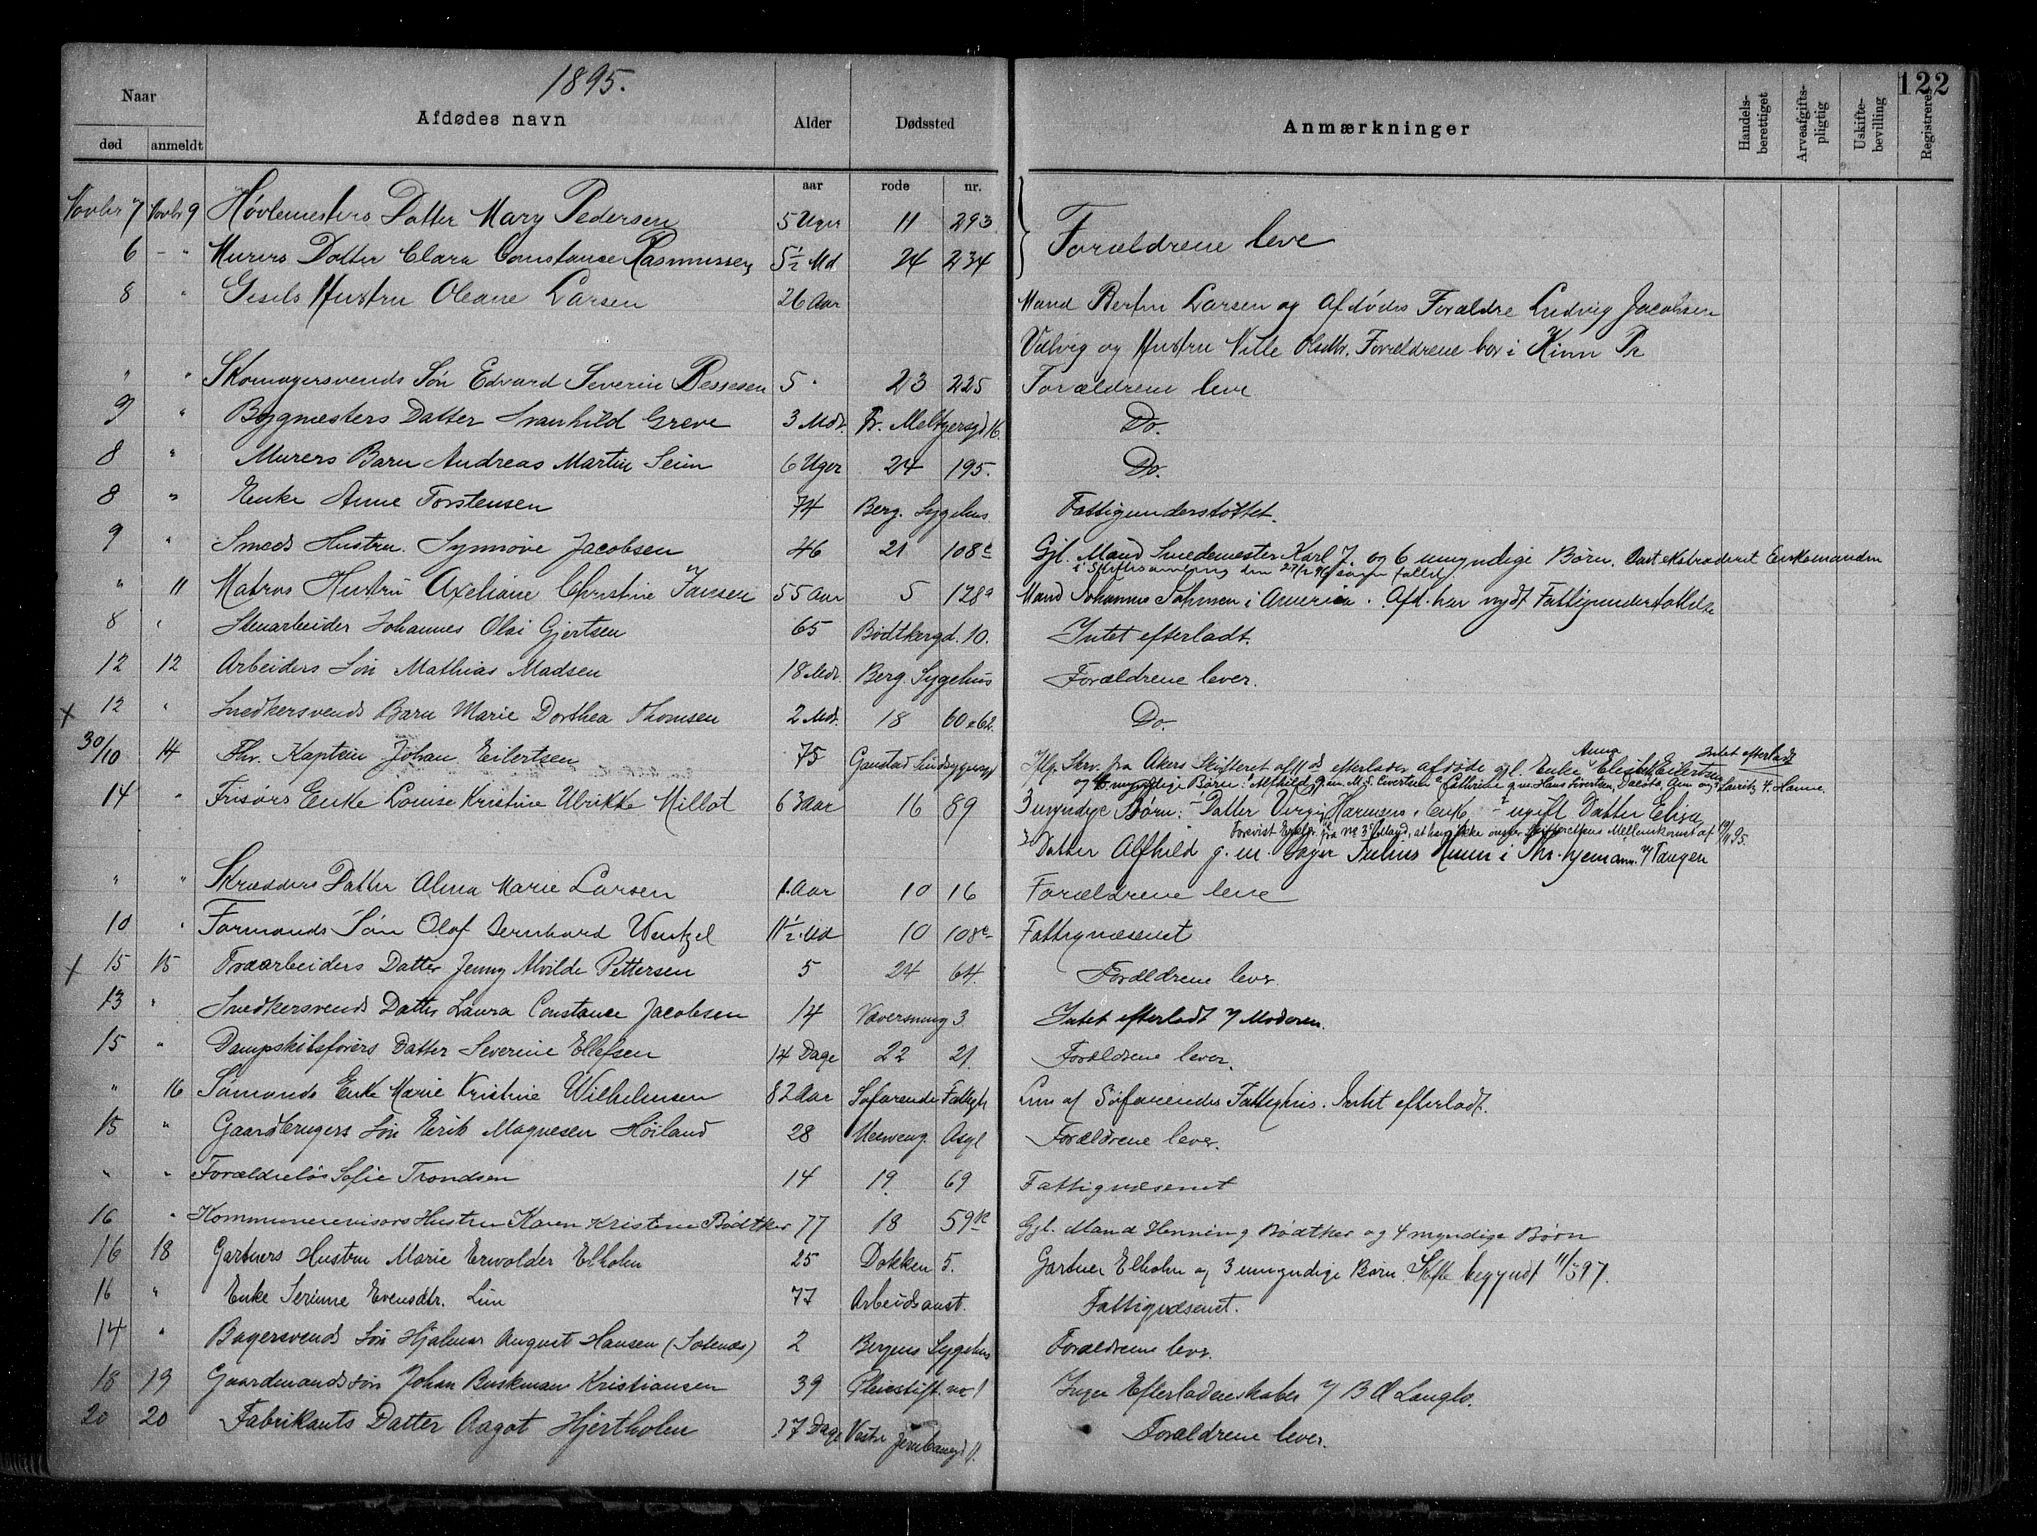 122
1895.
Naar Afdødes navn Alder Dødssted Anmærkninger Handels-berettiget Arveafgifts-pligtig Uskifte-bevilling Registreret
død anmeldt
aar rode nr.
Novbr 7 Novbr 9 Høvlemesters Datter Mary Pedersen 5 Uger 11 293
Forældrene leve
6 - " Murers Datter Clara Constance Rasmussen 5½ Md 24 234
8 " Gesels Hustru Oleane Larsen 26 Aar Mand Larsen og Afdødes Forældre Ludvig Jacobsen
og Hustru Olsdtr. Forældrene bor i Kinn Pr
" " Skomagersvends Søn Edvard Severin Bessesen 5 " 23 225 Forældrene leve
9 " Bygmesters Datter Svanhild Greve 3 Mdr. Fr. Meltzersgd 16 Do.
8 " Murers Barn Andreas Martin Seim 6 Uger 24 195. Do.
8 " Enke Anne Torstensen 74 Berg. Sygehus Fattigunderstøttet.
9 " Smeds Hustru. Synnøve Jacobsen 46 21 108c Gjl. Mand Smedemester Karl J. og 6 umyndige Børn. Enkemanden
i Skiftesamling den
" 11 Matros Hustru Axeliane Christine Jansen 55 Aar 5 128a Mand Johannes i Amerika. Afd. har nydt Fattigunderstøttelse
8 " Stenarbeider Johannes Olai Gjertsen 65 Bødtkergd. 10. Intet efterladt.
12 12 Arbeiders Søn Mathias Madsen 18 Mdr. Berg. Sygehus Forældrene lever.
x 12 " Snedkersvends Barn Marie Dorthea Thomsen 2 Mdr. 18 60 62. Do.
30/10 14 Fhv. Kaptein Johan Eilertsen 75 Gaustad Sindsygeasyl Ifl. Skr. fra Akers Skifteret efterlader afdøde gjl. Enke Anna Eilertsen Intet efterladt
og myndige Børn: Alfhild g. m. Cathrine g. m. Hans Hanne.
14 " Frisørs Enke Louise Kristine Ulrikke Millot 63 Aar 16 89 3 myndige Børn: 1 Datter Enke 2 ugift Datter Elisa
3 Datter Alfhild g. m. Bager Julius i
" " Skrædders Datter Alma Marie Larsen 1 Aar 10 16 Forældrene leve
10 " Formands Søn Olaf Bernhard Wentzel 11½ Md 10 108c Fattigvæsenet
x 15 15 Træarbeiders Datter Jenny Alvilde Pettersen 5 24 64. Forældrene lever.
13 " Snedkersvends Datter Laura Constance Jacobsen 14 3 Intet efterladt Moderen.
15 " Dampskibsførers Datter Severine Ellefsen 14 Dage 22 21. Forældrene lever.
" 16 Sømands Enke Marie Kristine Wilhelmsen 82 Aar Søfarendes Fattigh Lem af Søfarendes Fattighus. Intet efterladt.
15 " Gaardbrugers Søn Erik Magnesen Høiland 28 Asyl Forældrene lever.
" " Forældreløs Sofie Trondsen 14 19. 69 Fattigvæsenet
16 " Kommunerevisors Hustru Karen Kristine Bødtker 77 18 59 Gjl. Mand Henning Bødtker og 4 myndige Børn
16 18 Gartners Hustru Marie Elholm 25 Dokken 5. Gartner Elholm og 3 umyndige Børn. Skifte begyndt 11/5 97.
16 " Enke Serinne Evensdtr. Lin 77 Arbeidsanst. Fattigvæsenet.
14 " Bagersvends Søn Hjalmar August Hansen (Solends) 2 Bergens Sygehus Forældrene lever.
18 19 Gaardmandssøn Johan Buskman Kristiansen 39 Pleiestift. no 1 Ingen Efterladenskaber
20 20 Fabrikants Datter Aagot Hjertholm 17 Dage Vestre Forældrene lever.